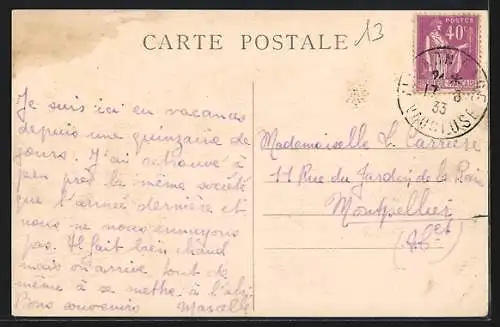 13
CARTE POSTALE
POSTES
40c
33
VAUCLUSE
Je suis ici en vacances
depuis une quinzaine de
jours. J'ai retrouvé à
peu près la même société
que l'année dernière et
nous ne nous ennuyons
pas. Il fait bien chaud
mais on arrive tout de
même à se mettre à l'abri
Bons souvenirs Marcelle
Mademoiselle L. Carrière
11 Rue du Jardin de la Reine
Montpellier
(Hlt)